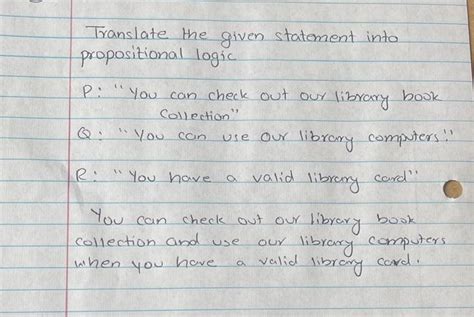 Translate the given statement into
propositional logic
P: "You can check out our library book
Collection"
Q: "You can use our library computers."
R: "You have a valid library card"
You can check out our library book
collection and use our library computers
when you have a valid library card.